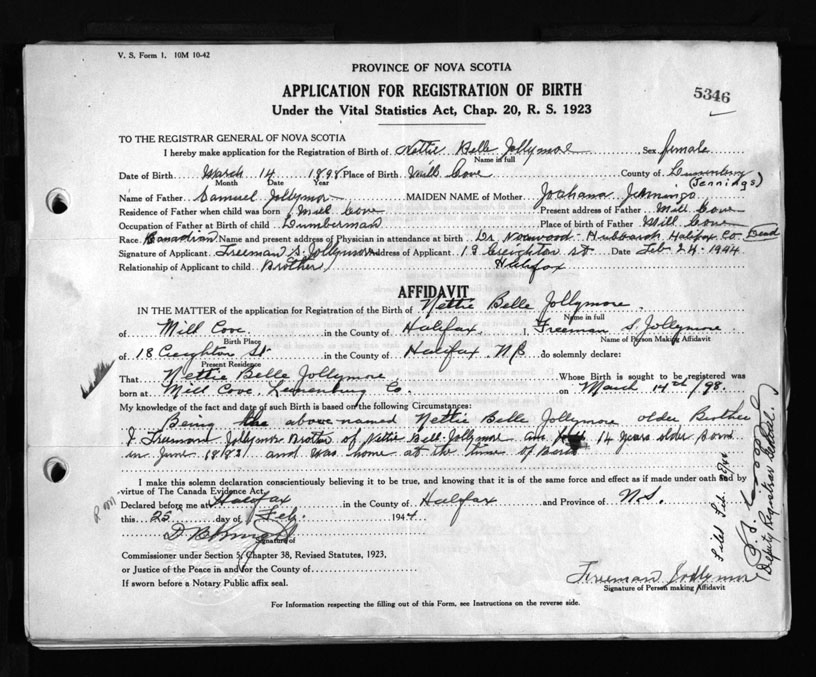 V. S. Form 1. 10M 10-42
PROVINCE OF NOVA SCOTIA
APPLICATION FOR REGISTRATION OF BIRTH
5346
Under the Vital Statistics Act, Chap. 20, R. S. 1923
TO THE REGISTRAR GENERAL OF NOVA SCOTIA
I hereby make application for the Registration of Birth of Nettie Belle Jollymore Sex female
Name in full
Date of Birth March 14 1898 Place of Birth Mill Cove County of Lunenburg
Month Date Year
(Jennings)
Name of Father Samuel Jollymore MAIDEN NAME of Mother Joahana Jennings
Residence of Father when child was born Mill Cove Present address of Father Mill Cove
Occupation of Father at Birth of child Lumberman Place of birth of Father Mill Cove
Race Canadian Name and present address of Physician in attendance at birth Dr Norwood - Hubbards Halifax Co Dead
Signature of Applicant Freeman S. Jollymore Address of Applicant 18 Creighton St Date Feb 24 - 1944
Relationship of Applicant to child Brother Halifax
AFFIDAVIT
IN THE MATTER of the application for Registration of the Birth of Nettie Belle Jollymore
Name in full
of Mill Cove in the County of Halifax I, Freeman S. Jollymore
Birth Place Name of Person Making Affidavit
of 18 Creighton St in the County of Halifax N.S. do solemnly declare:
Present Residence
That Nettie Belle Jollymore Whose Birth is sought to be registered was
born at Mill Cove, Lunenburg Co. on March 14th/98.
My knowledge of the fact and date of such Birth is based on the following Circumstances:
Being the above named Nettie Belle Jollymore older Brother
I Freeman Jollymore Brother of Nettie Bell Jollymore am 14 years older Born
in June 1883 and was home at the time of Birth
I make this solemn declaration conscientiously believing it to be true, and knowing that it is of the same force and effect as if made under oath and by
virtue of The Canada Evidence Act.
Declared before me at Halifax in the County of Halifax and Province of N.S.
this 25 day of Feb. 1944
Signature of
Commissioner under Section 5, Chapter 38, Revised Statutes, 1923,
or Justice of the Peace in and for the County of
If sworn before a Notary Public affix seal.
Freeman Jollymore
Signature of Person making Affidavit
For Information respecting the filling out of this Form, see Instructions on the reverse side.
Deputy Registrar General.